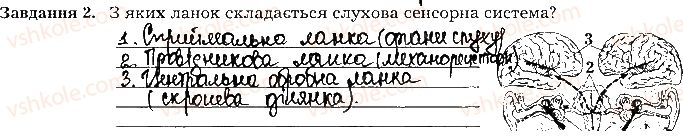 Завдання 2. З яких ланок складається слухова сенсорна система?
1. Сприймальна ланка (органи слуху)
2. Провідникова ланка (механорецептори)
3. Центральна обробна ланка
(скронева ділянка).
3
2
vshkole.com